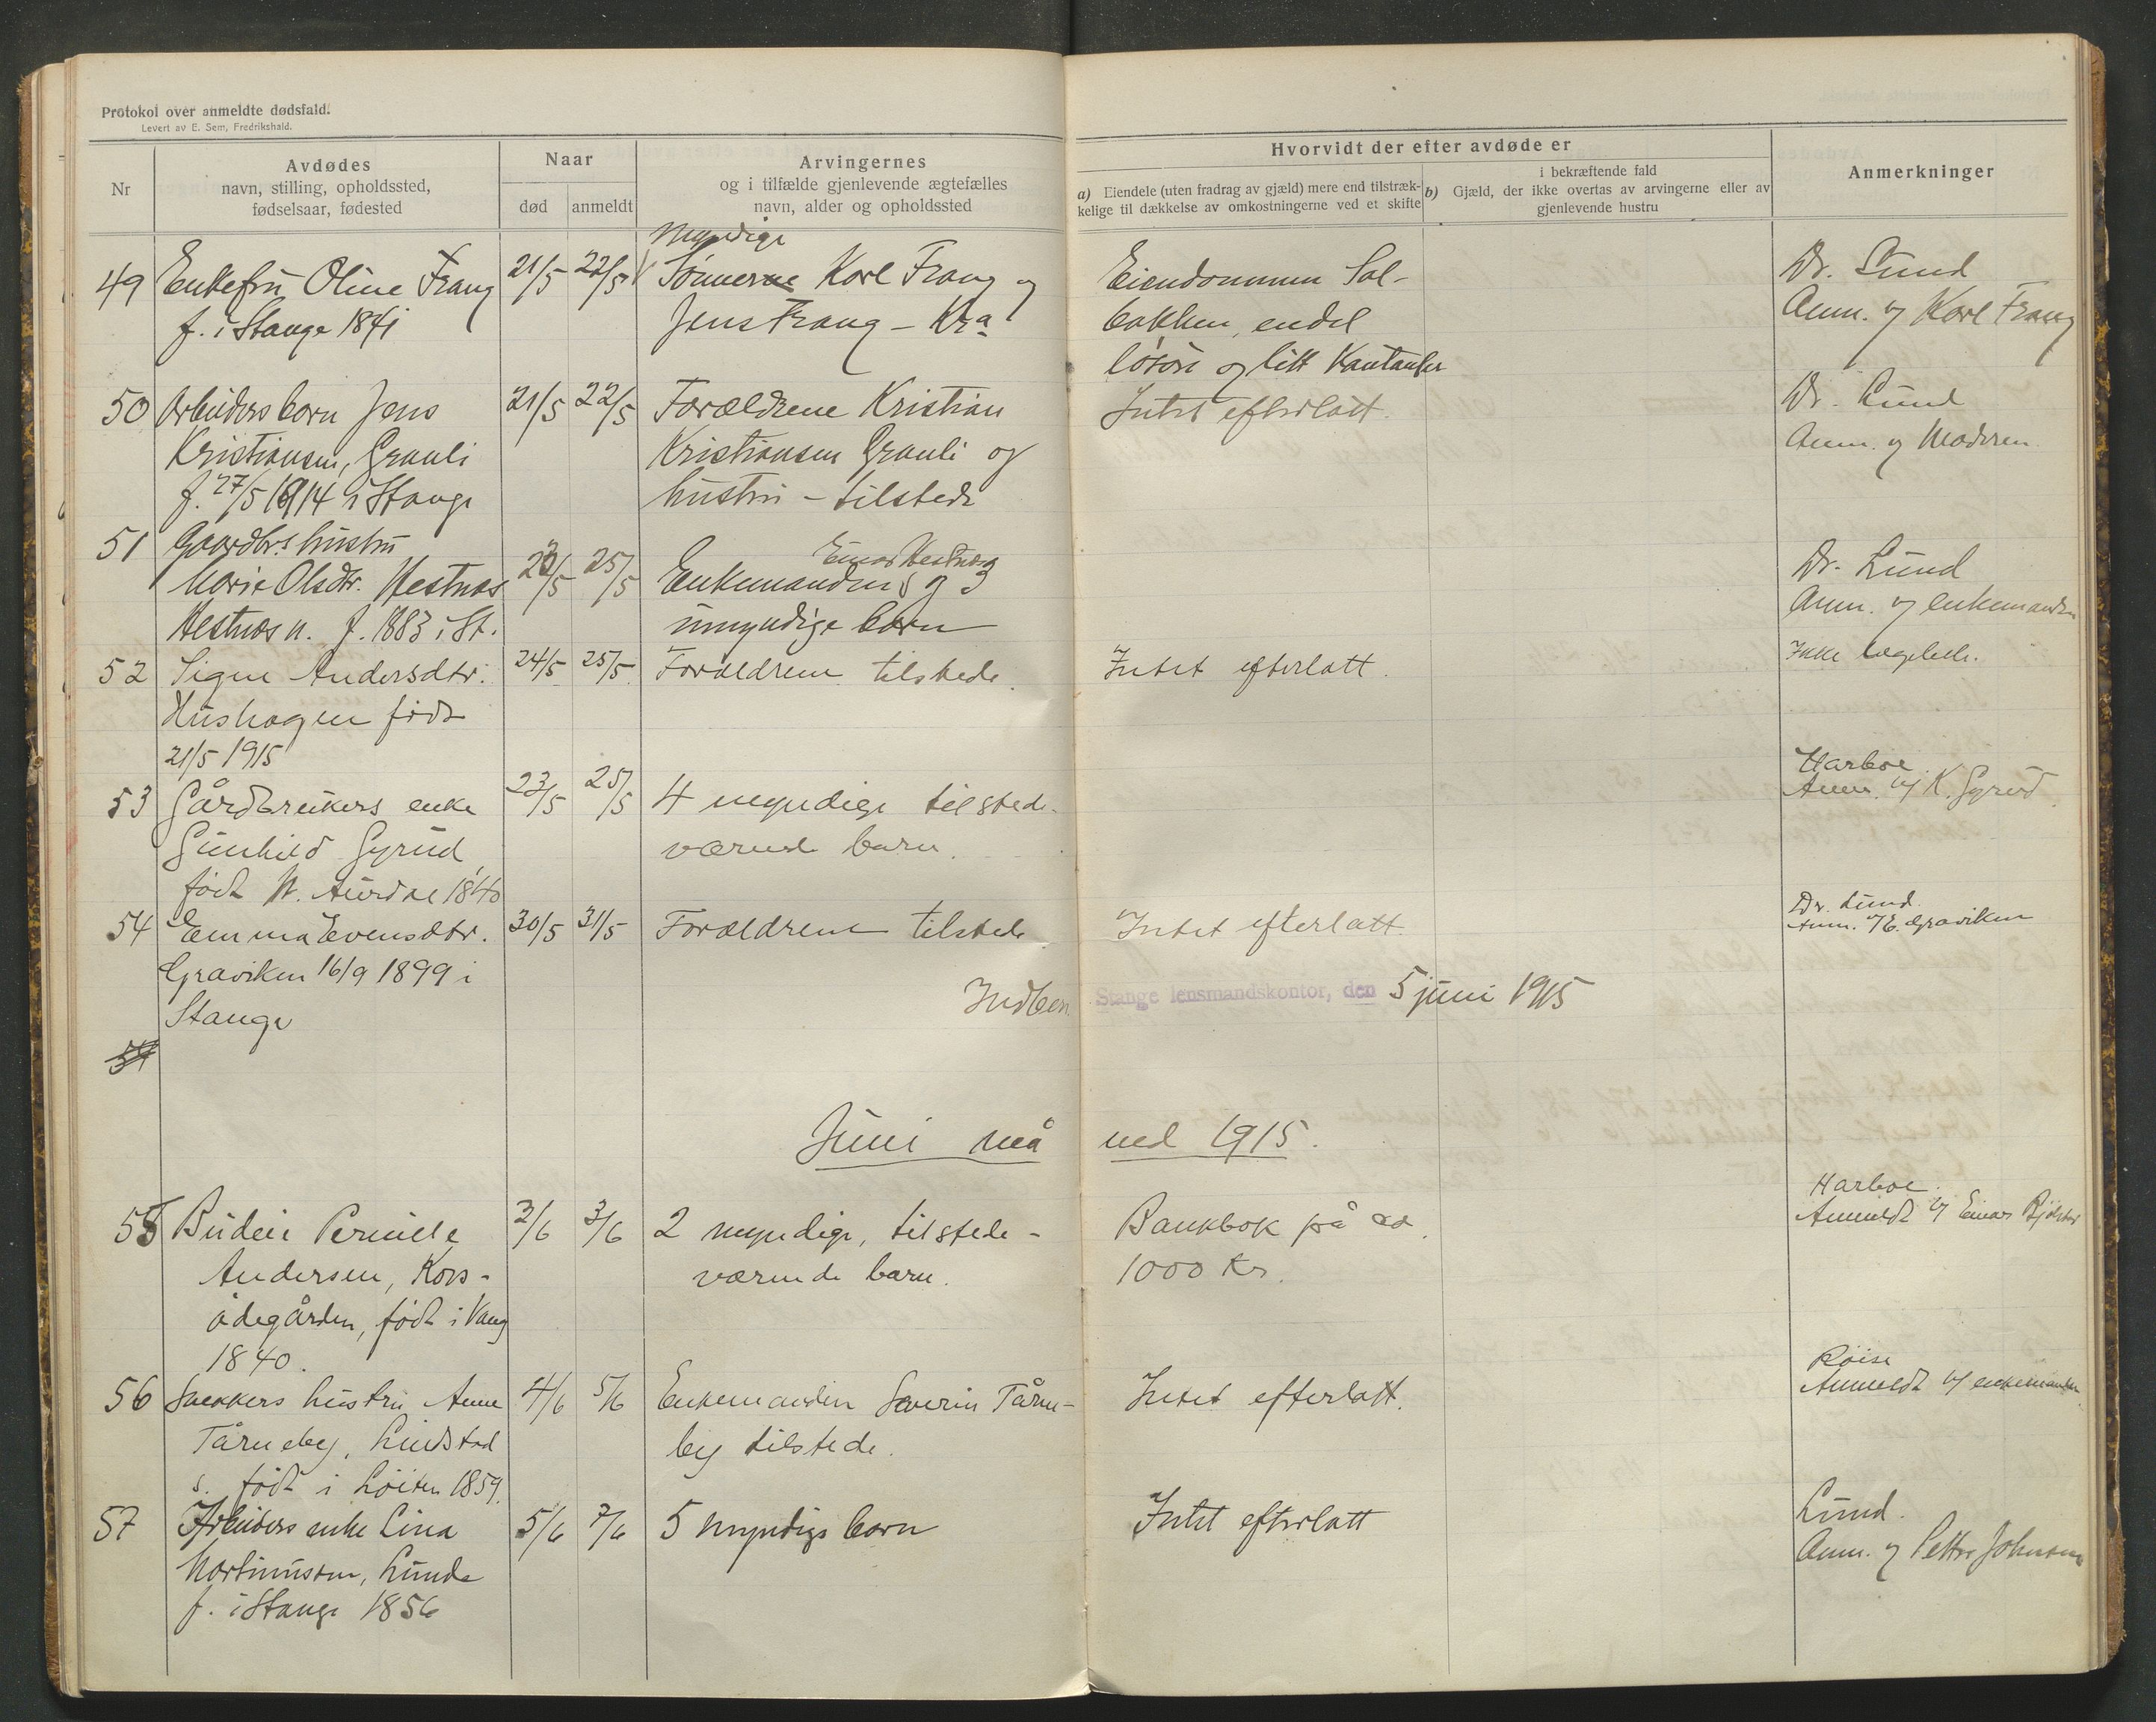 Protokol over anmeldte dødsfald.
Levert av E. Sem, Fredrikshald.
Nr
Avdødes
navn, stilling, opholdssted,
fødselsaar, fødested
Naar
død
anmeldt
Arvingernes
og i tilfælde gjenlevende ægtefælles
navn, alder og opholdssted
Hvorvidt der efter avdøde er
a) Eiendele (uten fradrag av gjæld) mere end tilstræk-
kelige til dækkelse av omkostningerne ved et skifte
i bekræftende fald
b) Gjæld, der ikke overtas av arvingerne eller av
gjenlevende hustru
Anmerkninger
49
Enkefru Oline Frang
f. i Stange 1841
21/5
22/5
Myndige
Sønnerne Karl Frang og
Jens Frang - Kra
Eiendommen Sol-
bakken, endel
løsøre og litt Kontanter
Dr. Lund
Anm. af Karl Frang
50
Arbeiders barn Jens
Kristiansen, Granli
f. 27/5 1914 i Stange
21/5
22/5
Forældrene Kristian
Kristiansen Granli og
hustru - tilstede
Intet efterlatt.
Dr. Lund
Anm. af Moderen
51
Gaardbr.s hustru
Marie Olsdtr. Hestnæs
Hestnæs n. f. 1883 i St.
25/5
Einar Hestnæs
Enkemanden og 3
umyndige barn
Dr. Lund
Anm. af enkemanden
52
Signe Andersdtr.
Hushagen født
21/5 1915
24/5
25/5
Forældrene tilstede.
Intet efterlatt.
Ikke lægebeh.
53
Gårdbrukers enke
Gunhild Gyrud,
født N. Aurdal 1840
23/5
25/5
4 myndige tilstede-
værende barn.
Harboe
Anm. af K. Gyrud.
54
Emma Evensdtr.
Graviken 16/9 1899 i
Stange
30/5
31/5
Forældrene tilstede
Intet efterlatt.
Dr. Lund.
Anm. E. Graviken
Indber.
Stange lensmandskontor, den 5 juni 1915
54
Juni måned 1915.
55
Budeie Pernille
Andersen, Kors-
ødegården, født i Vang
1840.
2/6
3/6
2 myndige, tilstede-
værende barn.
Bankbok på ca.
1000 Kr.
Harboe.
Anmeldt af Einar
56
Snekkers hustru Anne
Tårneby, Lindstad
s. født i Løiten 1859.
4/6
5/6
Enkemanden Severin Tårne-
by tilstede.
Intet efterlatt.
Røise
Anmeldt af enkemanden
57
Arbeiders enke Lina
Martinusen, Lunde
f. i Stange 1856
5/6
7/6
5 myndige barn
Intet efterlatt
Lund.
Anm. af Petter Johnsen